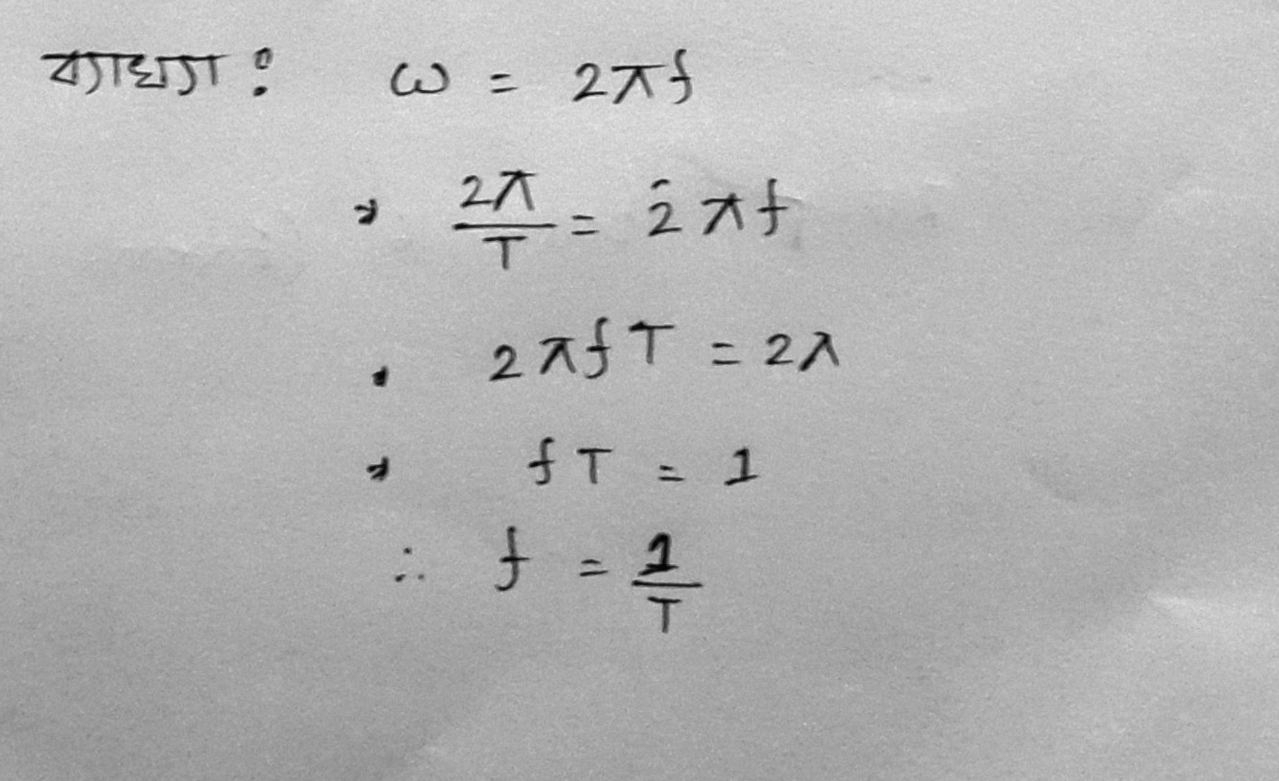 ব্যাখ্যা : ω = 2πf
⇒ 2π/T = 2πf
⇒ 2πfT = 2π
⇒ fT = 1
∴ f = 1/T